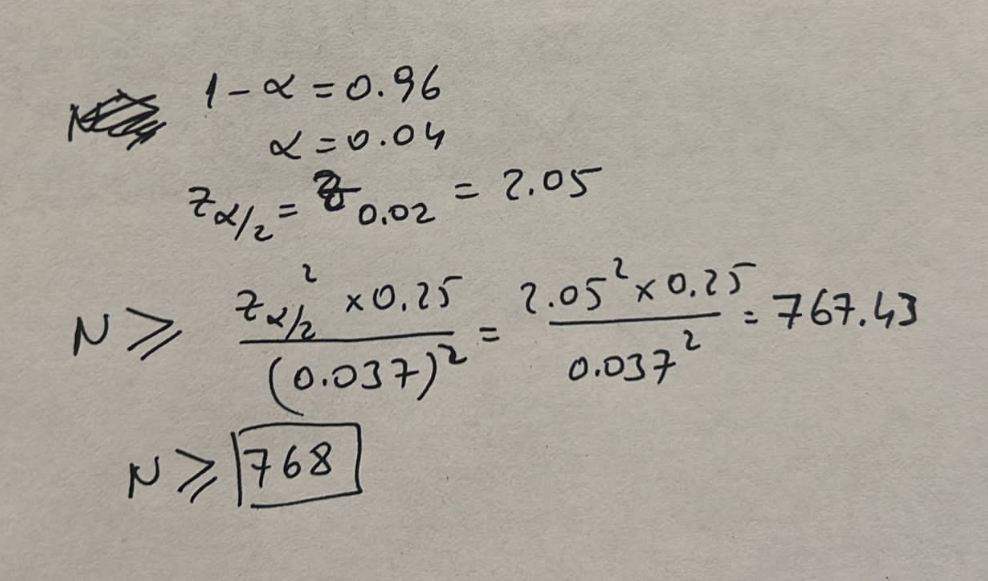 1 - α = 0.96
α = 0.04
z_{α/2} = z_{0.02} = 2.05
N ≥ \frac{z_{α/2}^2 × 0.25}{(0.037)^2} = \frac{2.05^2 × 0.25}{0.037^2} = 767.43
N ≥ 768